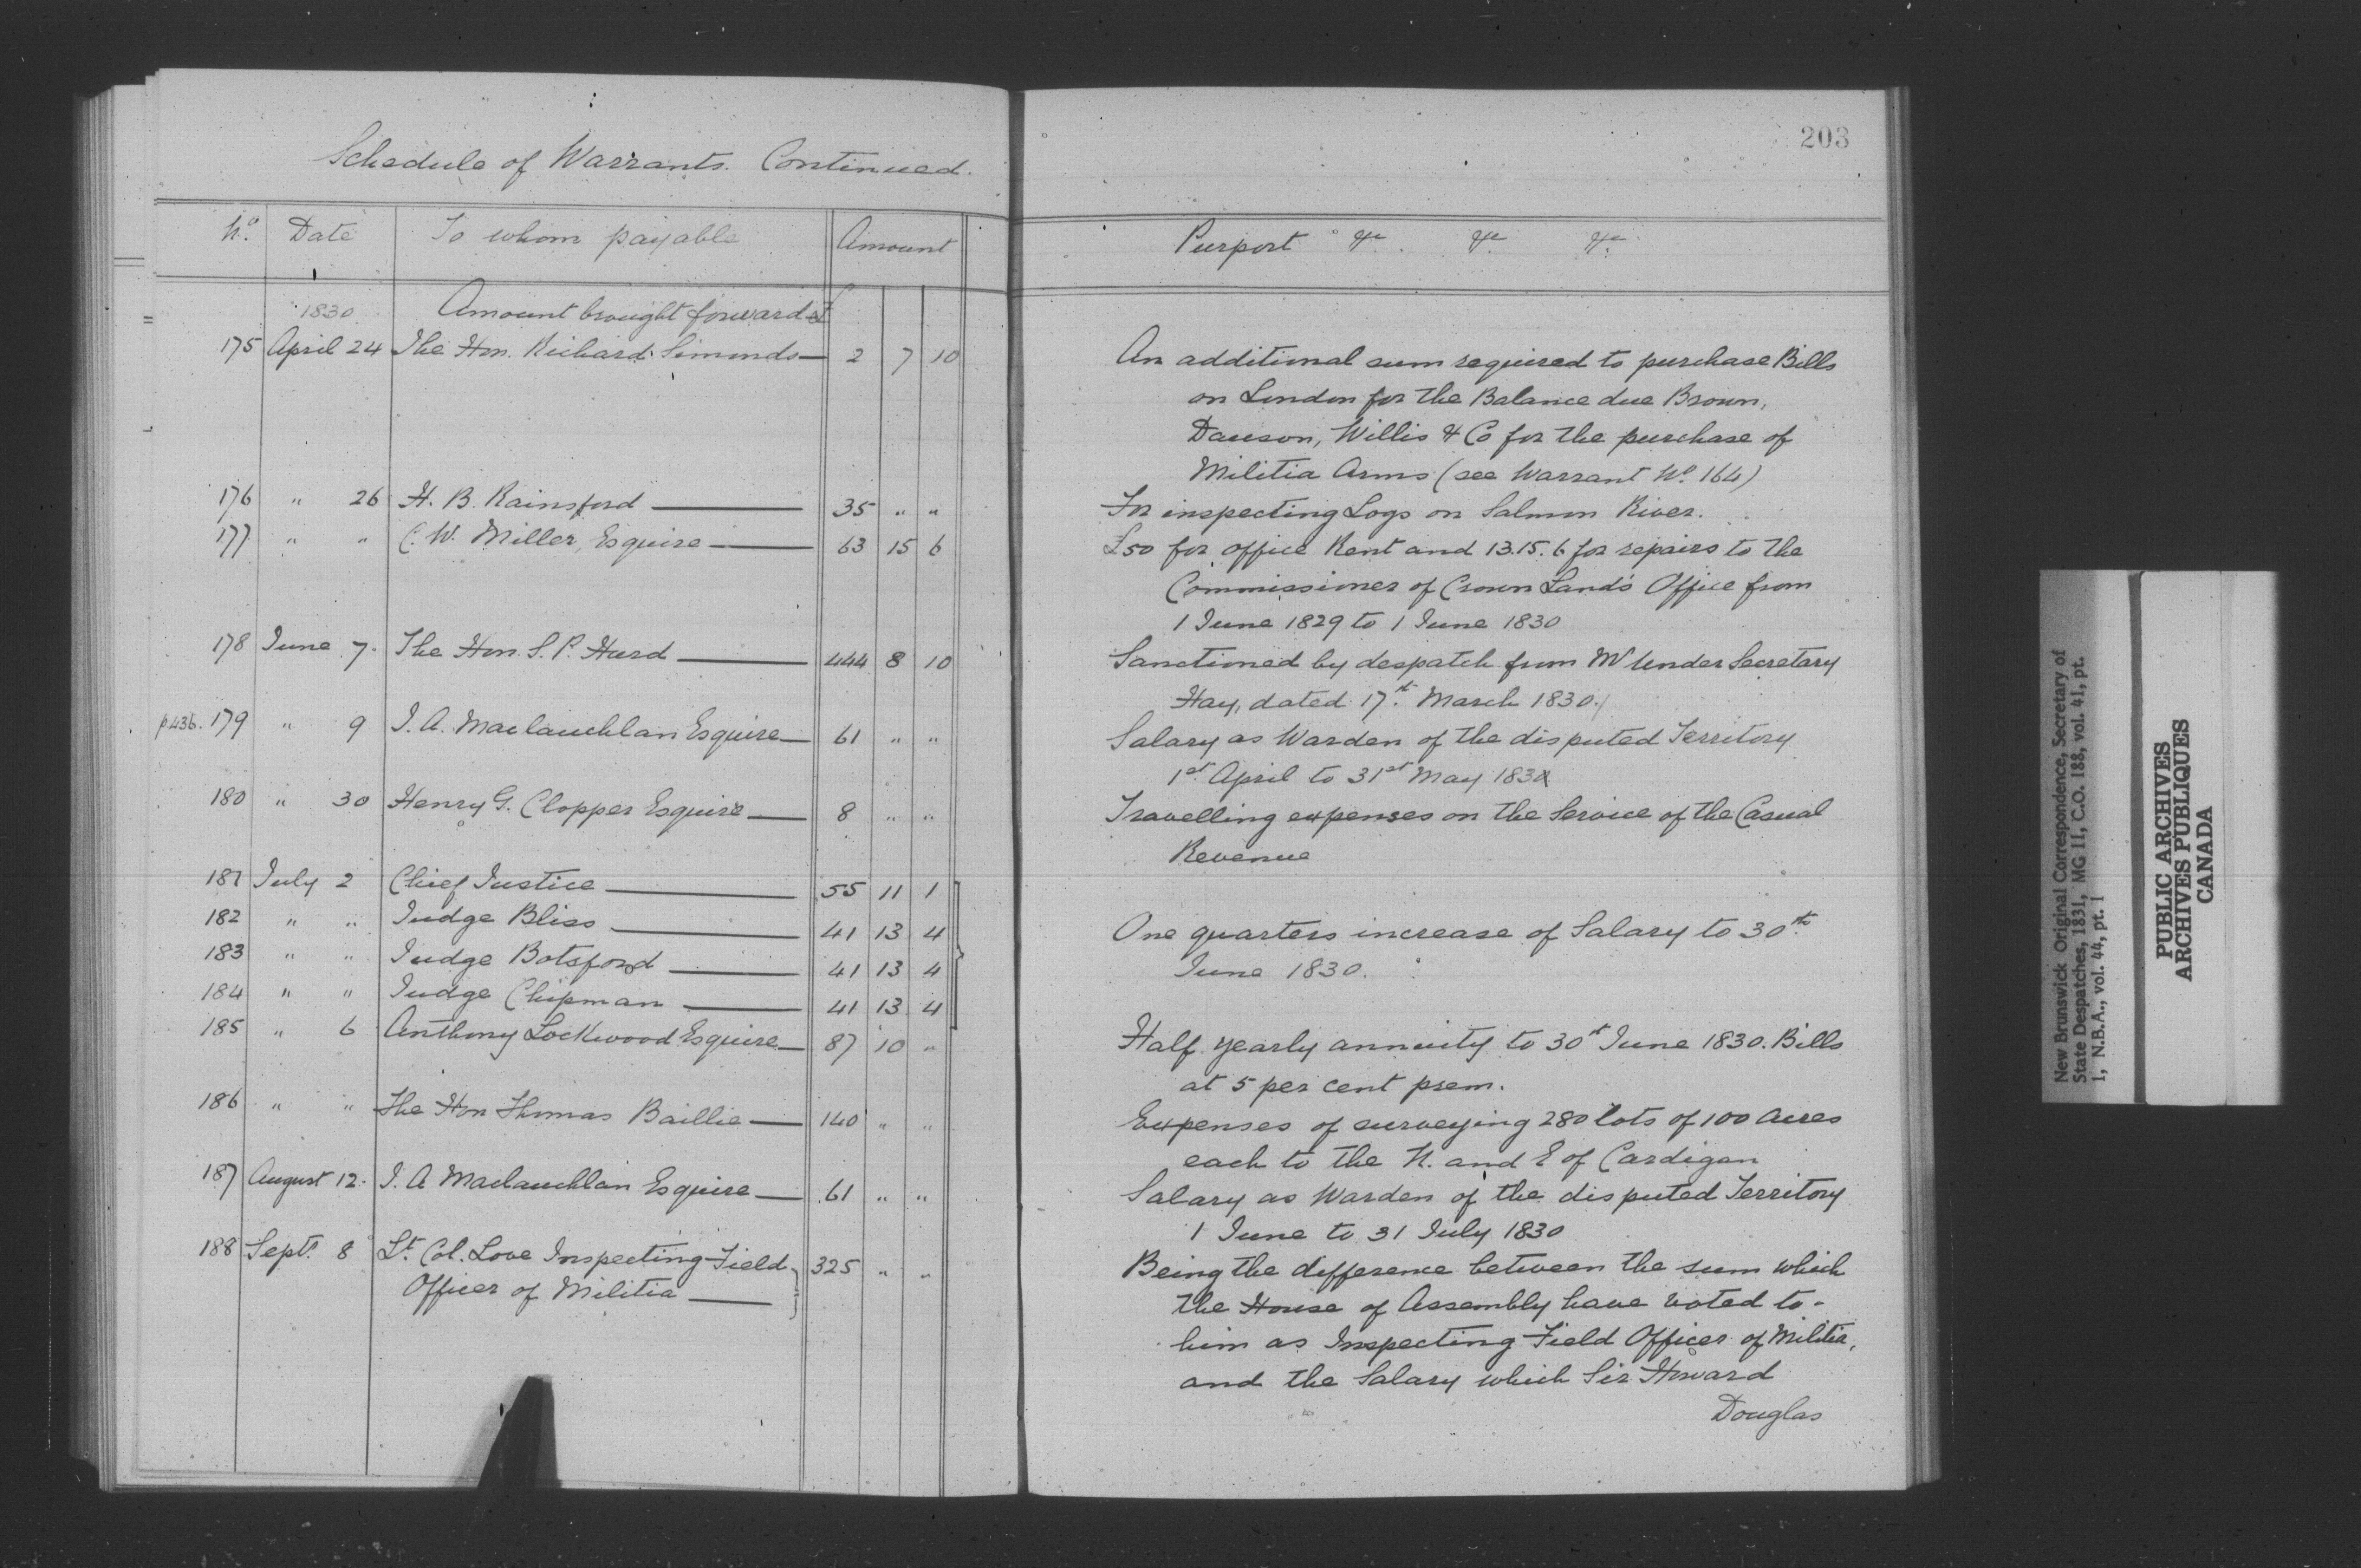 203
Schedule of Warrants. Continued.
No. Date To whom payable Amount Purport &c. &c. &c.
1830 Amount brought forward £
175 April 24 The Hon. Richard Simonds 2 7 10 An additional sum required to purchase Bills
on London for the Balance due Brown,
Dawson, Willis & Co for the purchase of
Militia Arms (see Warrant No. 164)
176 " 26 H. B. Rainsford 35 " " For inspecting Logs on Salmon River.
177 " " C. W. Miller, Esquire 63 15 6 £50 for office Rent and 13.15.6 for repairs to the
Commissioner of Crown Lands Office from
1 June 1829 to 1 June 1830
178 June 7. The Hon. S. P. Hurd 444 8 10 Sanctioned by despatch from Mr Under Secretary
Hay, dated 17th March 1830.
p436. 179 " 9 J. A. Maclauchlan Esquire 61 " " Salary as Warden of the disputed Territory
1st April to 31st May 1830
180 " 30 Henry G. Clopper Esquire 8 " " Travelling expenses on the Service of the Casual
Revenue
181 July 2 Chief Justice 55 11 1
182 " " Judge Bliss 41 13 4 One quarters increase of Salary to 30th
183 " " Judge Botsford 41 13 4 June 1830.
184 " " Judge Chipman 41 13 4
185 " 6 Anthony Lockwood Esquire 87 10 " Half yearly annuity to 30th June 1830. Bills
at 5 per cent prem.
186 " " The Hon Thomas Baillie 140 " " Expenses of surveying 280 lots of 100 acres
each to the N. and E of Cardigan
187 August 12. J. A Maclauchlan Esquire 61 " " Salary as Warden of the disputed Territory
1 June to 31 July 1830
188 Sept. 8 Lt. Col. Love Inspecting Field 325 " " Being the difference between the sum which
Officer of Militia the House of Assembly have voted to
him as Inspecting Field Officer of Militia,
and the Salary which Sir Howard
Douglas
New Brunswick Original Correspondence, Secretary of
State Despatches, 1831, MG 11, C.O. 188, vol. 41, pt.
1, N.B.A., vol. 44, pt. 1
PUBLIC ARCHIVES
ARCHIVES PUBLIQUES
CANADA